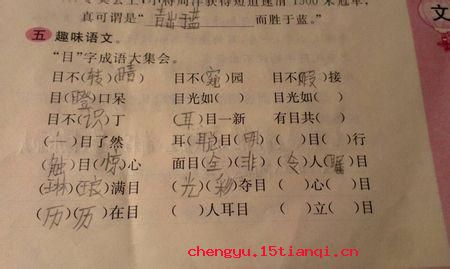 真可谓是“青出于蓝而胜于蓝。”
文
五 趣味语文。
“目”字成语大集会。
目不(转)(睛) 目不(窥)园 目不(暇)接
目(瞪)口呆 目光如( ) 目光如( )
目不(识)丁 (耳)目一新 有目共( )
(一)目了然 耳(聪)目(明) ( )目( )行
(触)目(惊)心 面目(全)(非) (令)人( )目
(琳)(琅)满目 (光)(彩)夺目 ( )心( )目
(历)(历)在目 ( )人耳目 ( )立( )目
chengyu.15tianqi.cn